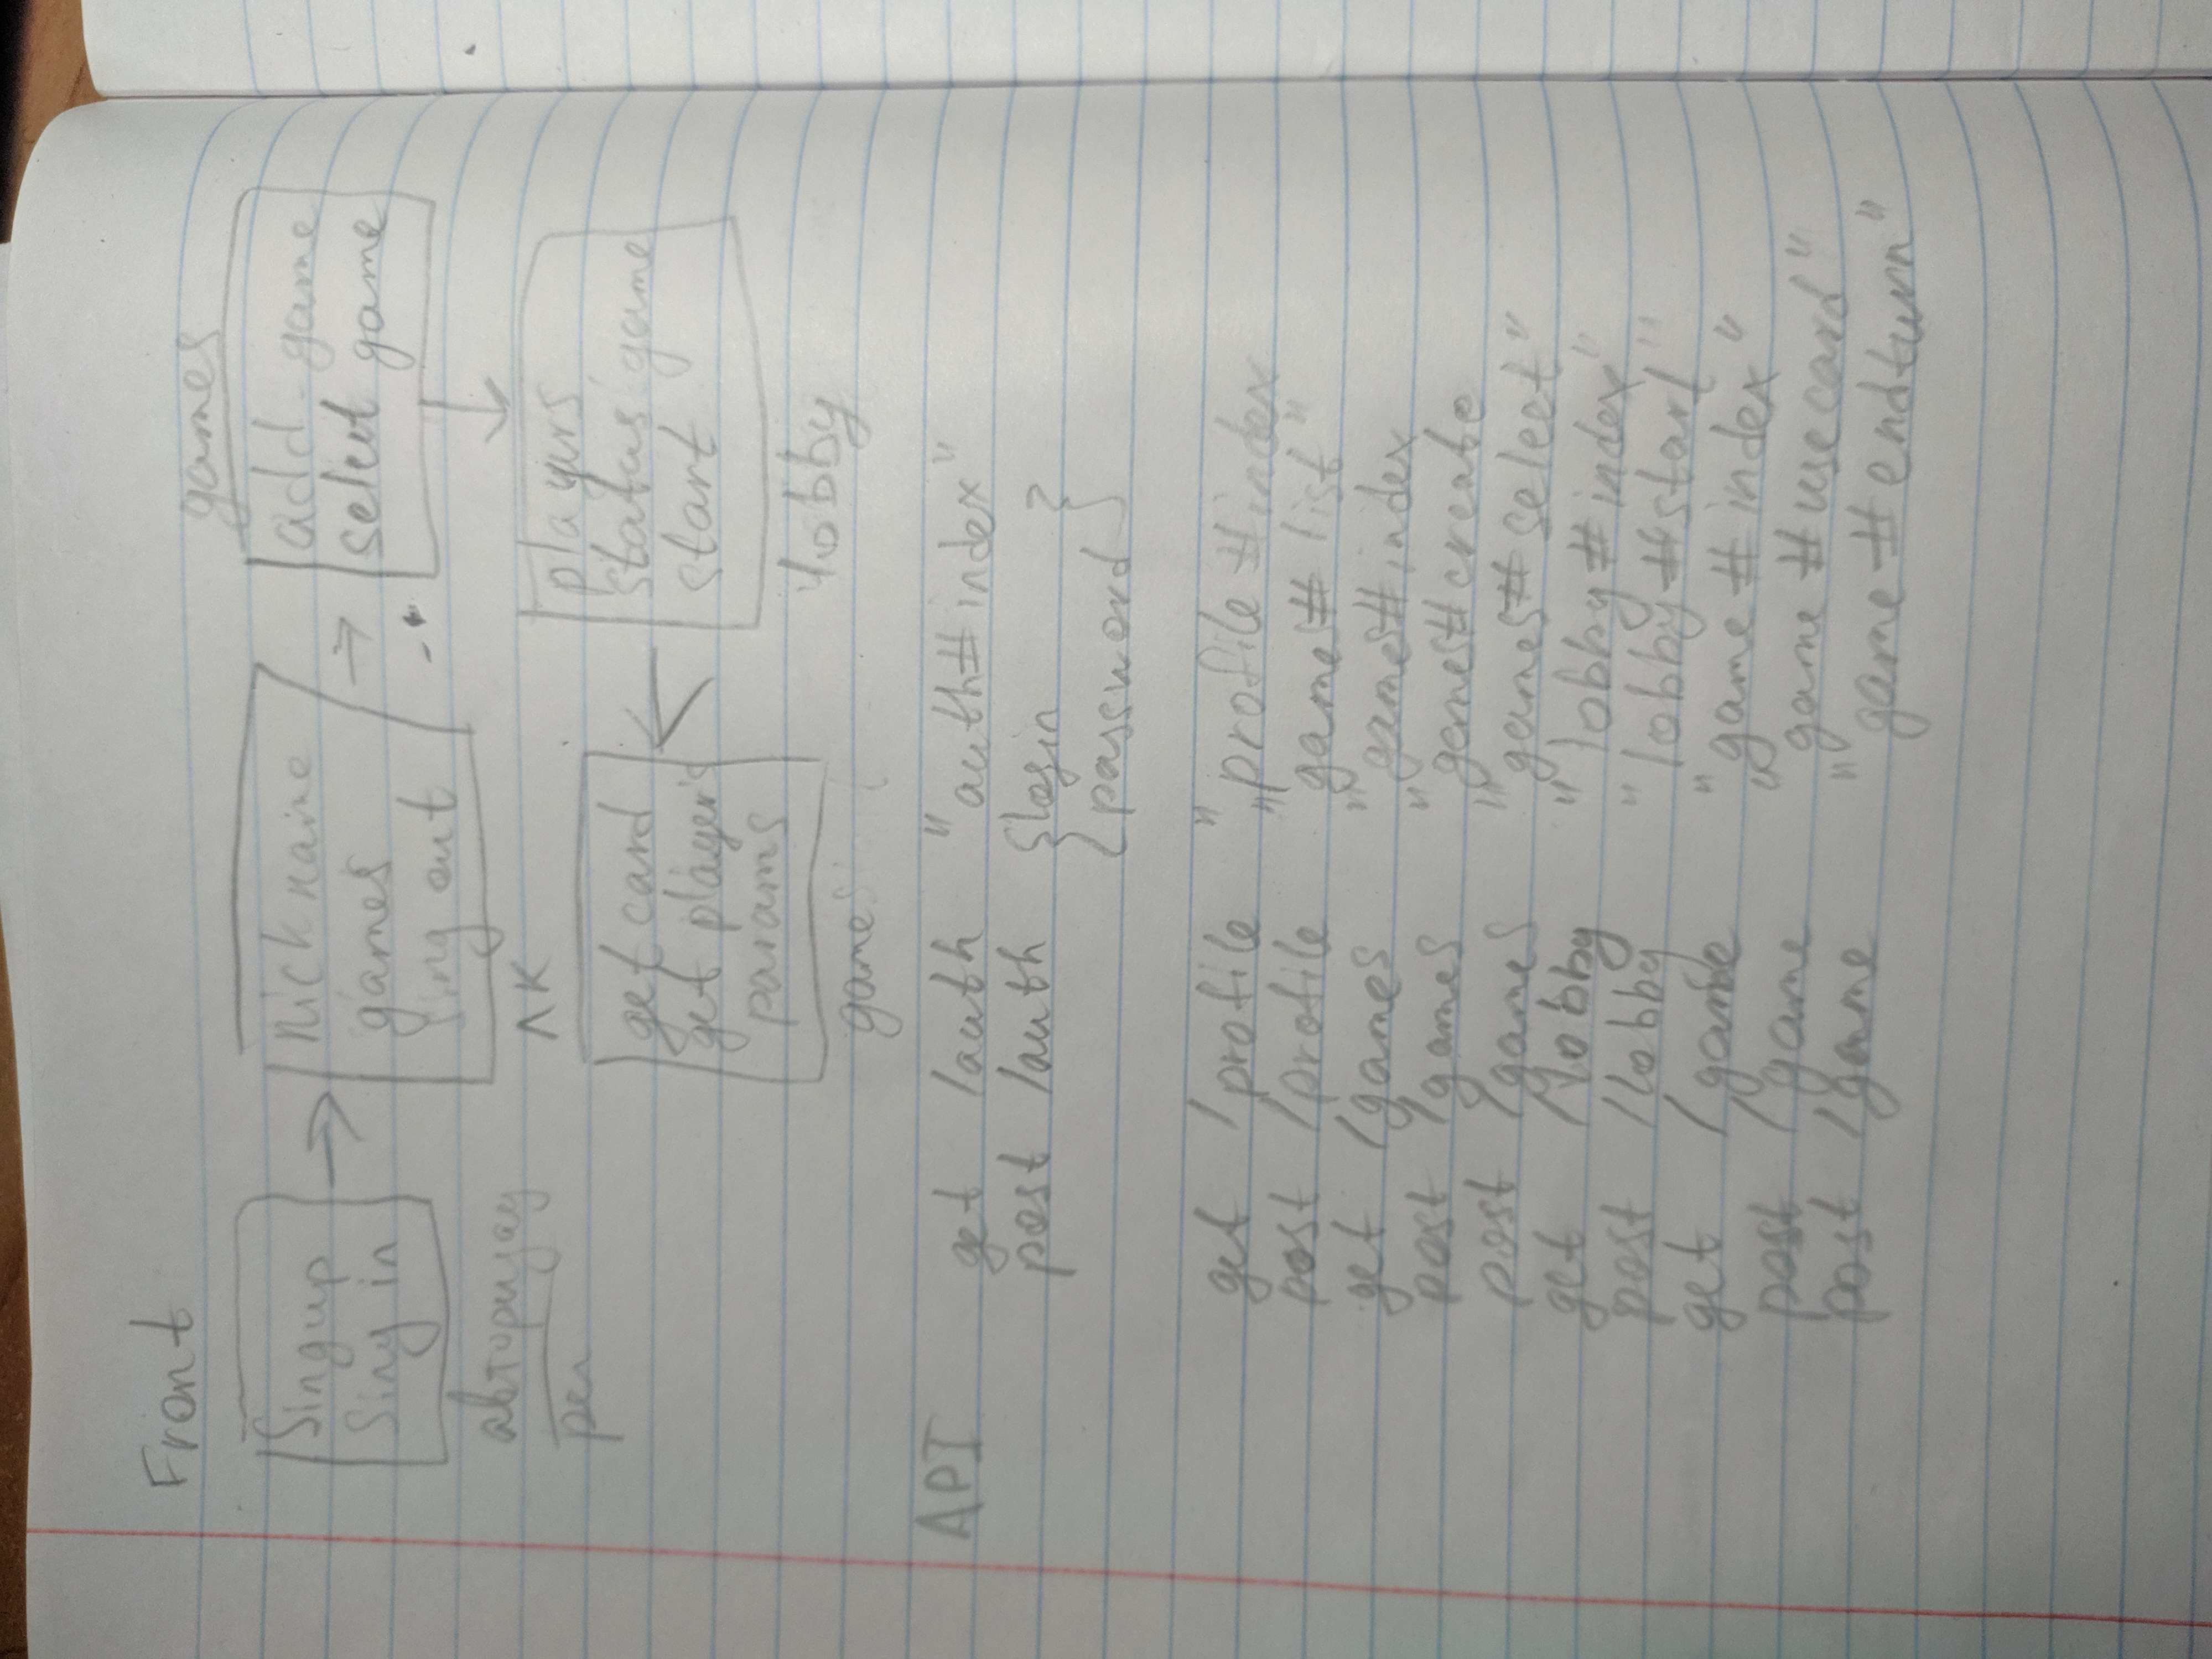 Front
Singup
Sing in
авторизац
рег
nickname
games
Sing out
ЛК
games
add game
select game
players
status game
start
lobby
get card
get player's
params
games
API
get /auth "auth#index"
post /auth {login
{password}
get /profile "profile#index
post /profile "games#list"
get /games "games#index
post /games "games#create
post /games "games#select"
get /lobby "lobby#index"
post /lobby "lobby#start"
get /game "game#index"
post /game "game#usecard"
post /game "game#endturn"